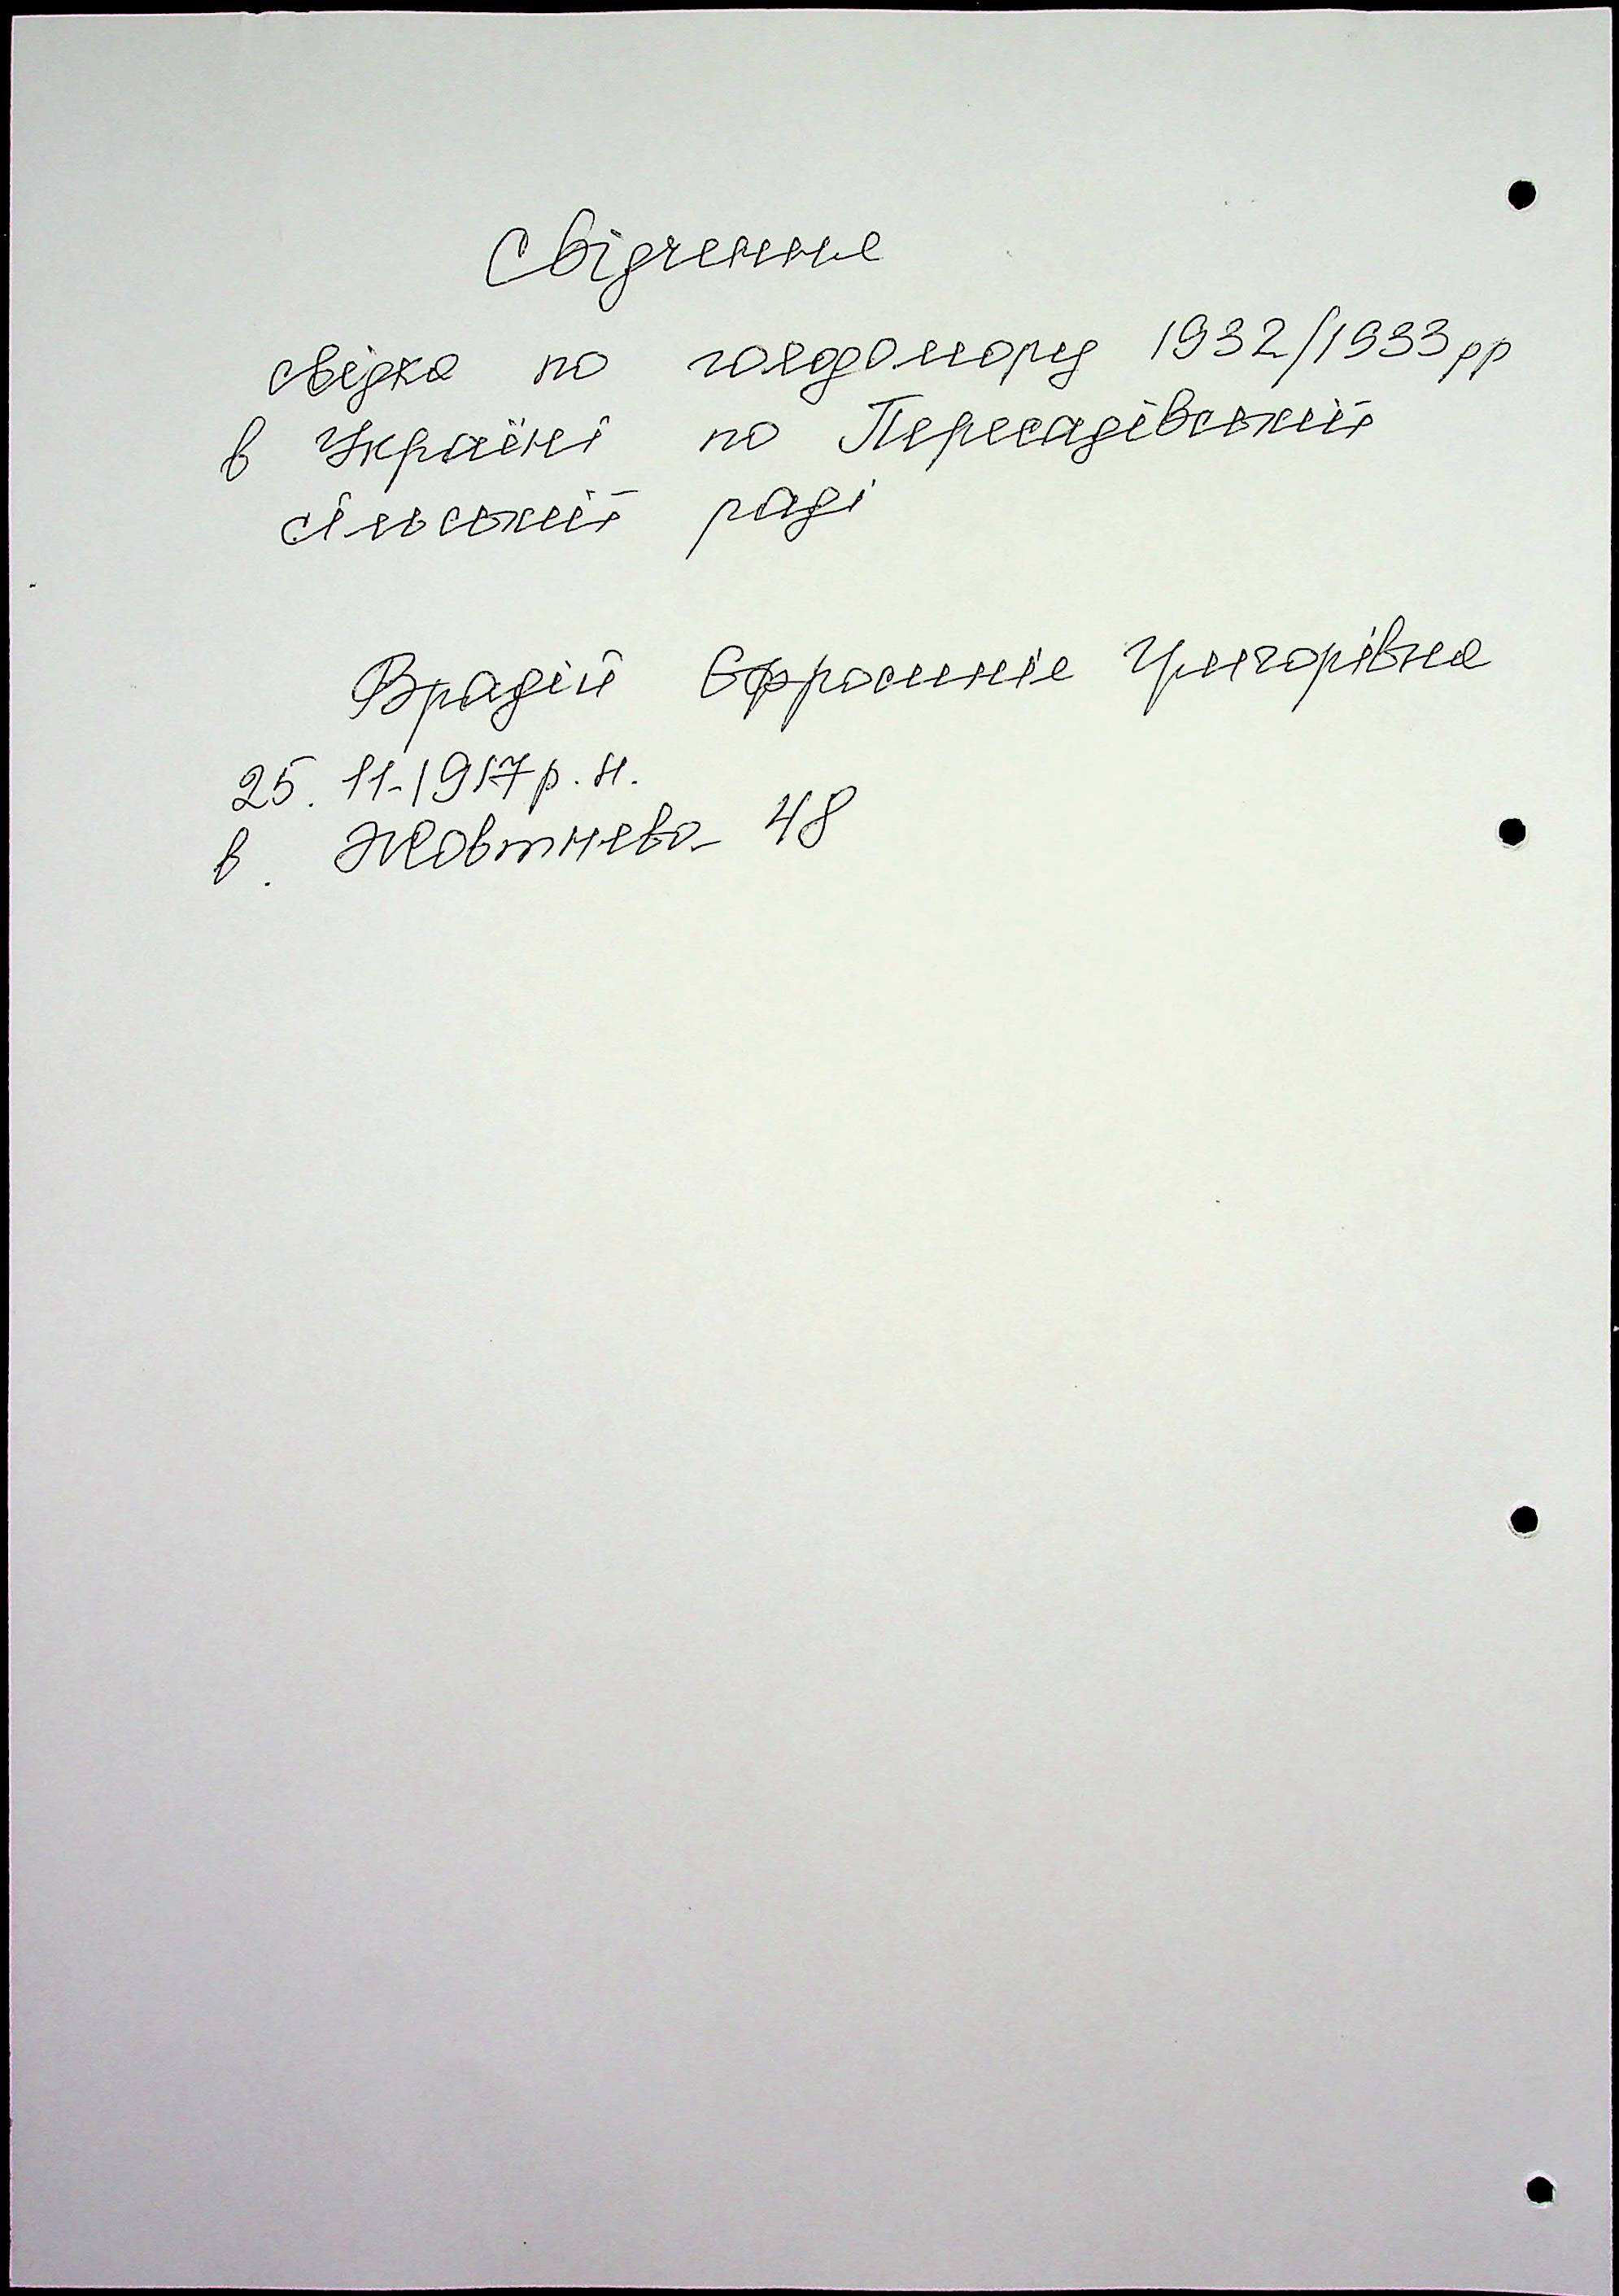 Свідчення
свідка по голодомору 1932/1933 рр
в Україні по Пересадівській
сільській раді
Врадій Єфросинія Григорівна
25. 11-1917 р. н.
в. Жовтнева 48